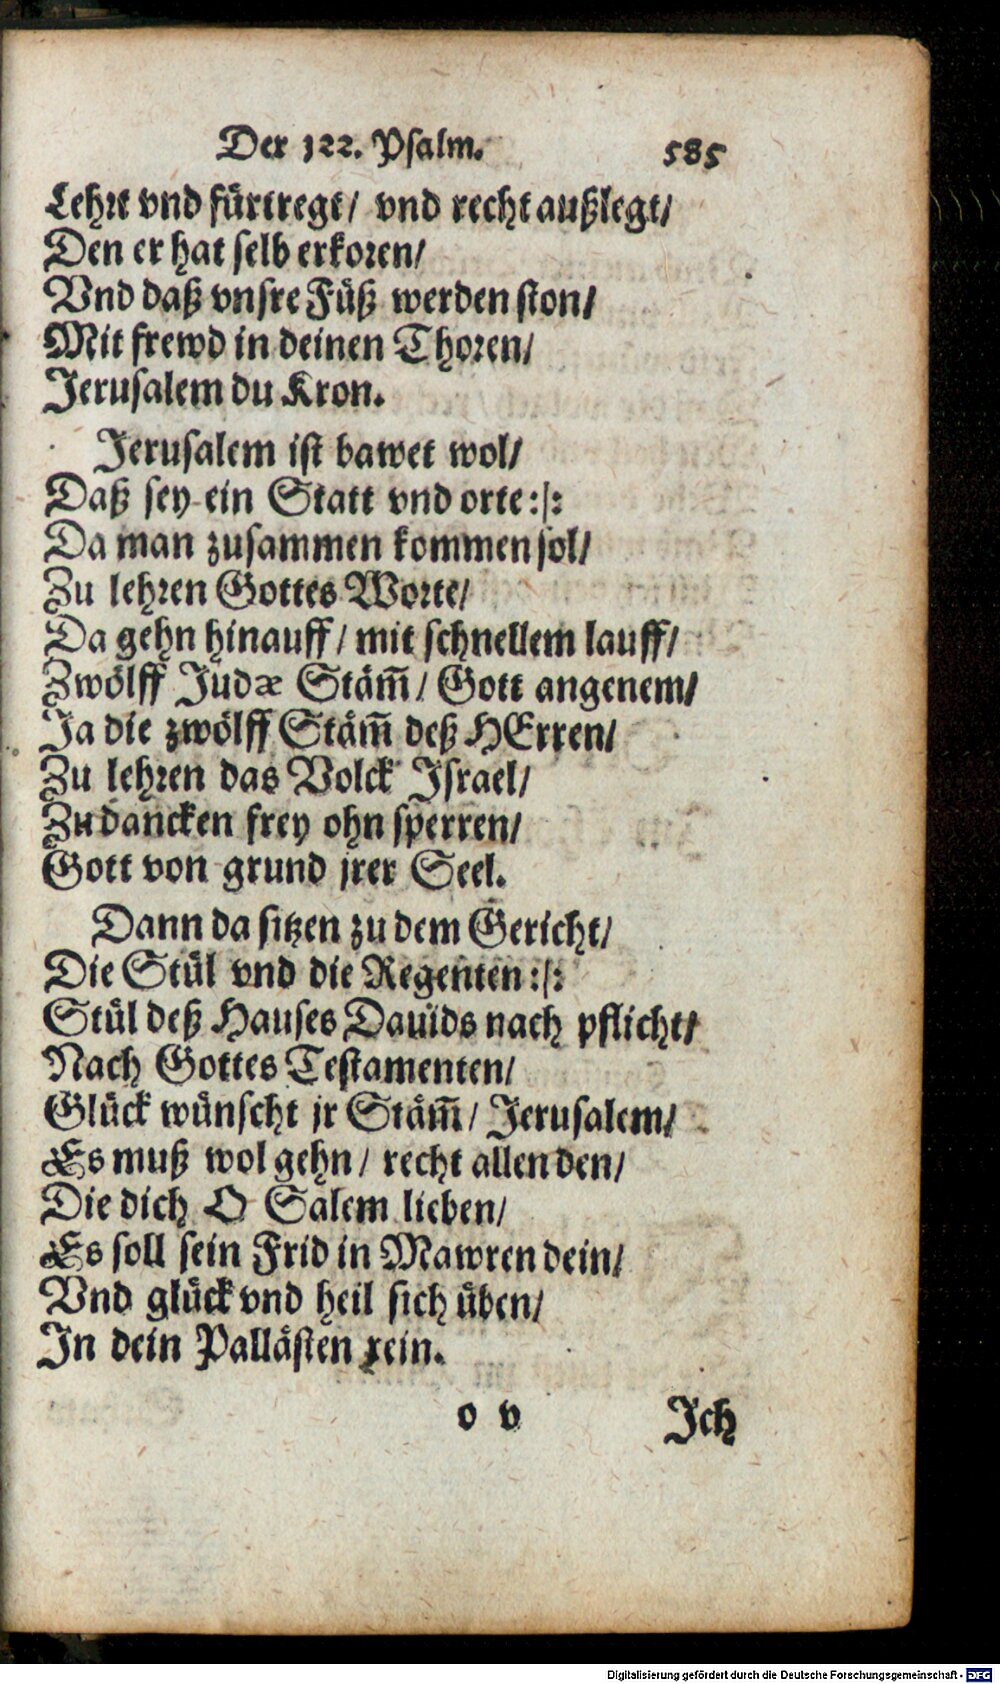 Der 122. Psalm. 585
Lehrt vnd fürtregt/ vnd recht außlegt/
Den er hat selb erkoren/
Vnd daß vnsre Füß werden ston/
Mit frewd in deinen Thoren/
Jerusalem du Kron.
Jerusalem ist bawet wol/
Daß sey ein Statt vnd orte:/:
Da man zusammen kommen sol/
Zu lehren Gottes Worte/
Da gehn hinauff/ mit schnellem lauff/
Zwölff Judæ Stäm̃/ Gott angenem/
Ja die zwölff Stäm̃ deß HErren/
Zu lehren das Volck Israel/
Zu dancken frey ohn sperren/
Gott von grund jrer Seel.
Dann da sitzen zu dem Gericht/
Die Stül vnd die Regenten:/:
Stül deß Hauses Dauids nach pflicht/
Nach Gottes Testamenten/
Glück wünscht jr Stäm̃/ Jerusalem/
Es muß wol gehn/ recht allen den/
Die dich O Salem lieben/
Es soll sein Frid in Mawren dein/
Vnd glück vnd heil sich üben/
In dein Pallästen rein.
o v Ich
Digitalisierung gefördert durch die Deutsche Forschungsgemeinschaft - DFG